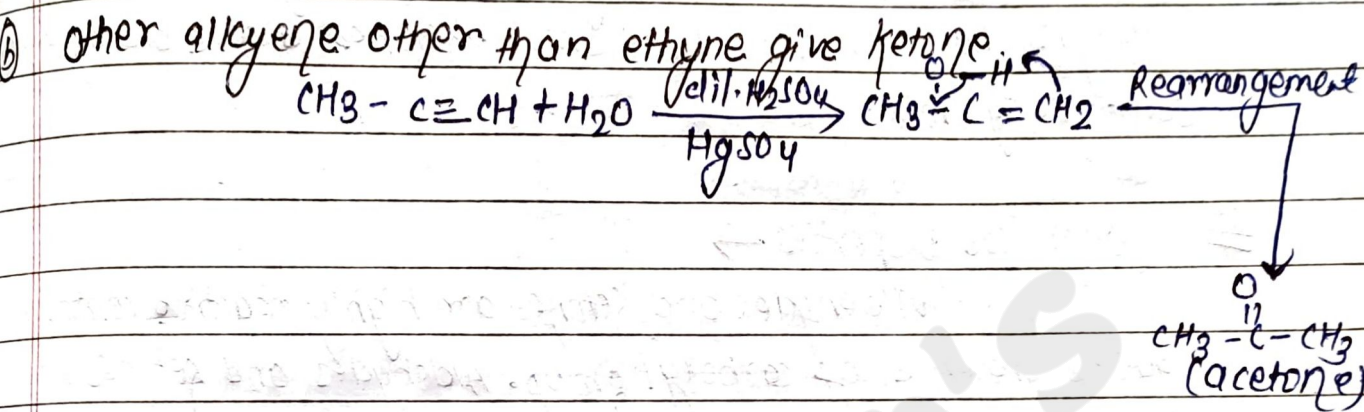 ⓑ other alkyene other than ethyne give ketone.
CH3 - C ≡ CH + H2O dil. H2SO4 HgSO4 CH3 - C = CH2 Rearrangement
O - H
O
CH3 - C - CH3
(acetone)